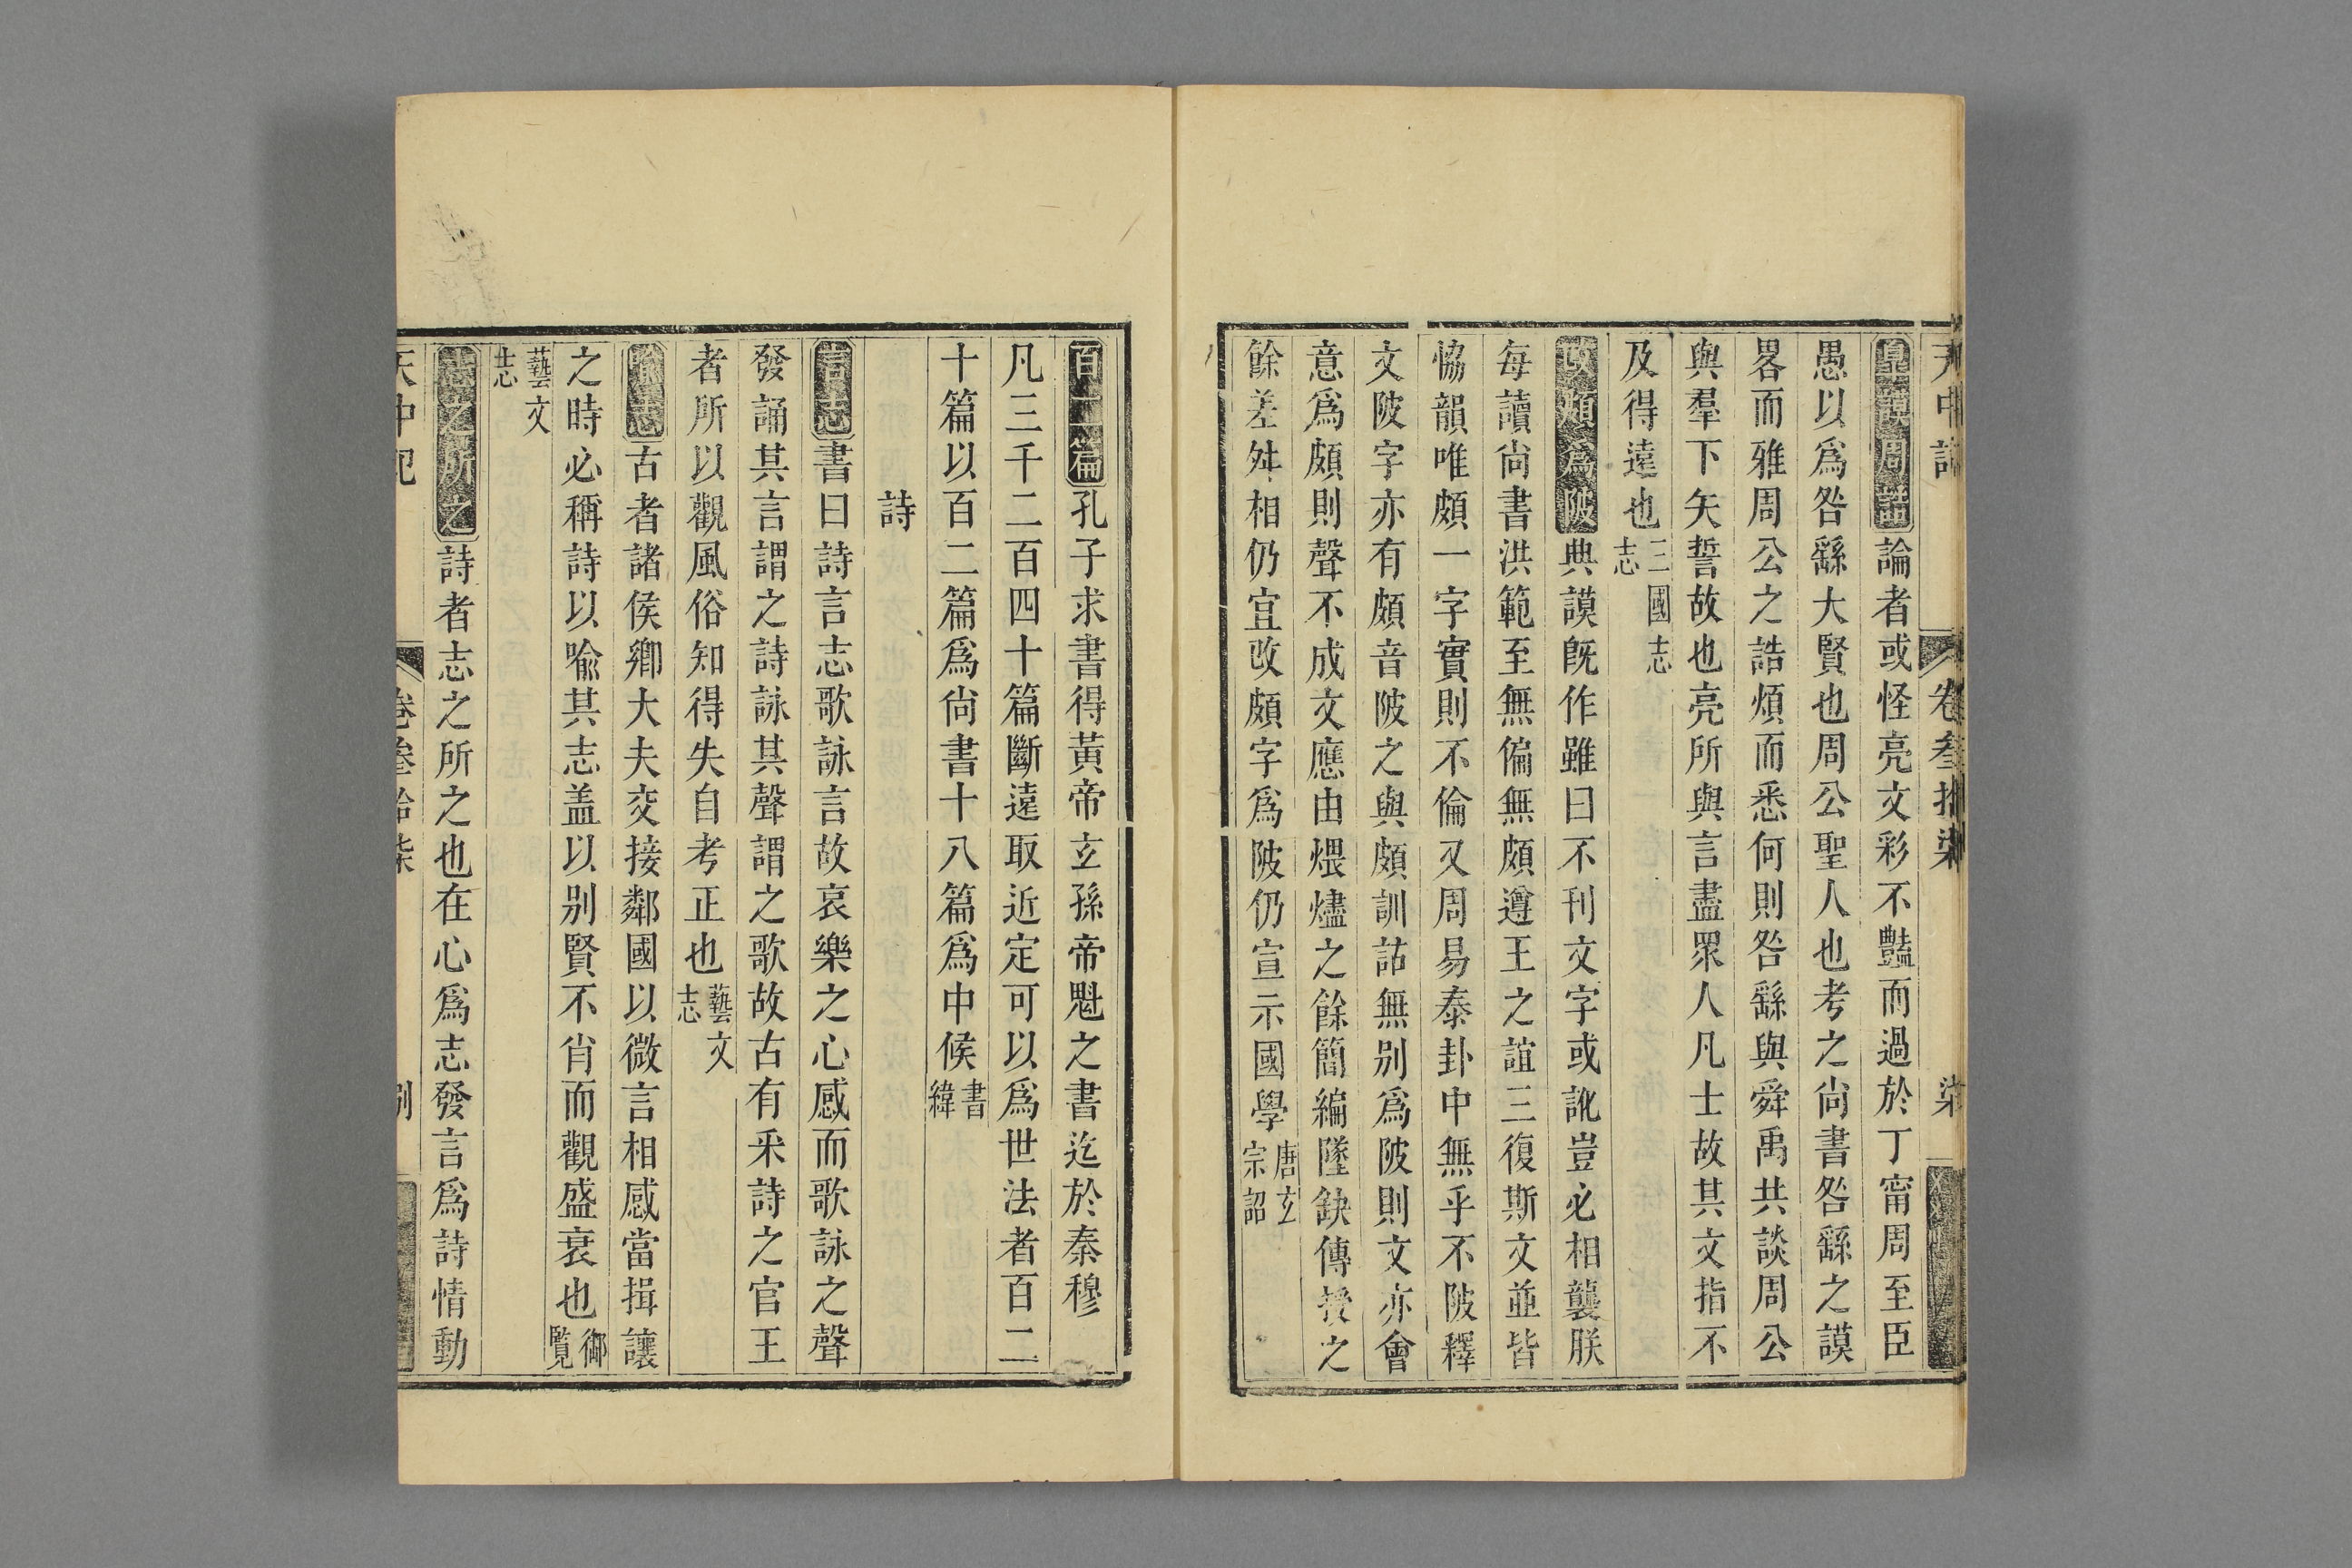 天中記 卷叁拾柒 柒
皐謨周誥論者或怪亮文彩不豔而過於丁甯周至臣
愚以爲咎繇大賢也周公聖人也考之尙書咎繇之謨
畧而雅周公之誥煩而悉何則咎繇與舜禹共談周公
與羣下矢誓故也亮所與言盡眾人凡士故其文指不
及得遠也三國志志
改頗爲陂典謨旣作雖曰不刊文字或訛豈必相襲朕
每讀尙書洪範至無偏無頗遵王之誼三復斯文並皆
恊韻唯頗一字實則不倫又周易泰卦中無乎不陂釋
文陂字亦有頗音陂之與頗訓詁無别爲陂則文亦會
意爲頗則聲不成文應由煨燼之餘簡編墜缺傳授之
餘差舛相仍宜改頗字爲陂仍宣示國學唐玄宗詔
百二篇孔子求書得黃帝玄孫帝魁之書迄於秦穆
凡三千二百四十篇斷遠取近定可以爲世法者百二
十篇以百二篇爲尙書十八篇爲中候書緯
詩
言志書曰詩言志歌詠言故哀樂之心感而歌詠之聲
發誦其言謂之詩詠其聲謂之歌故古有采詩之官王
者所以觀風俗知得失自考正也藝文志
喻志古者諸侯卿大夫交接鄰國以微言相感當揖讓
之時必稱詩以喻其志盖以别賢不肖而觀盛衰也御覽
藝文志
志之所之詩者志之所之也在心爲志發言爲詩情動
天中記 卷叁拾柒 捌